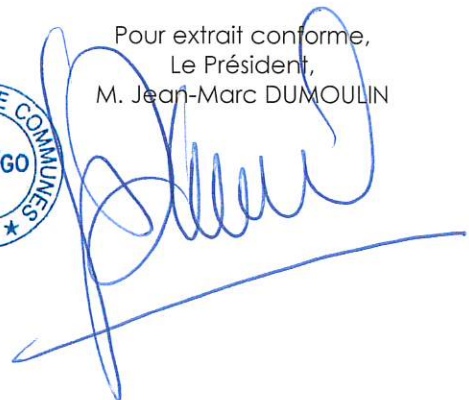 Pour extrait conforme,
Le Président,
M. Jean-Marc DUMOULIN
E COMMUNES *
GO